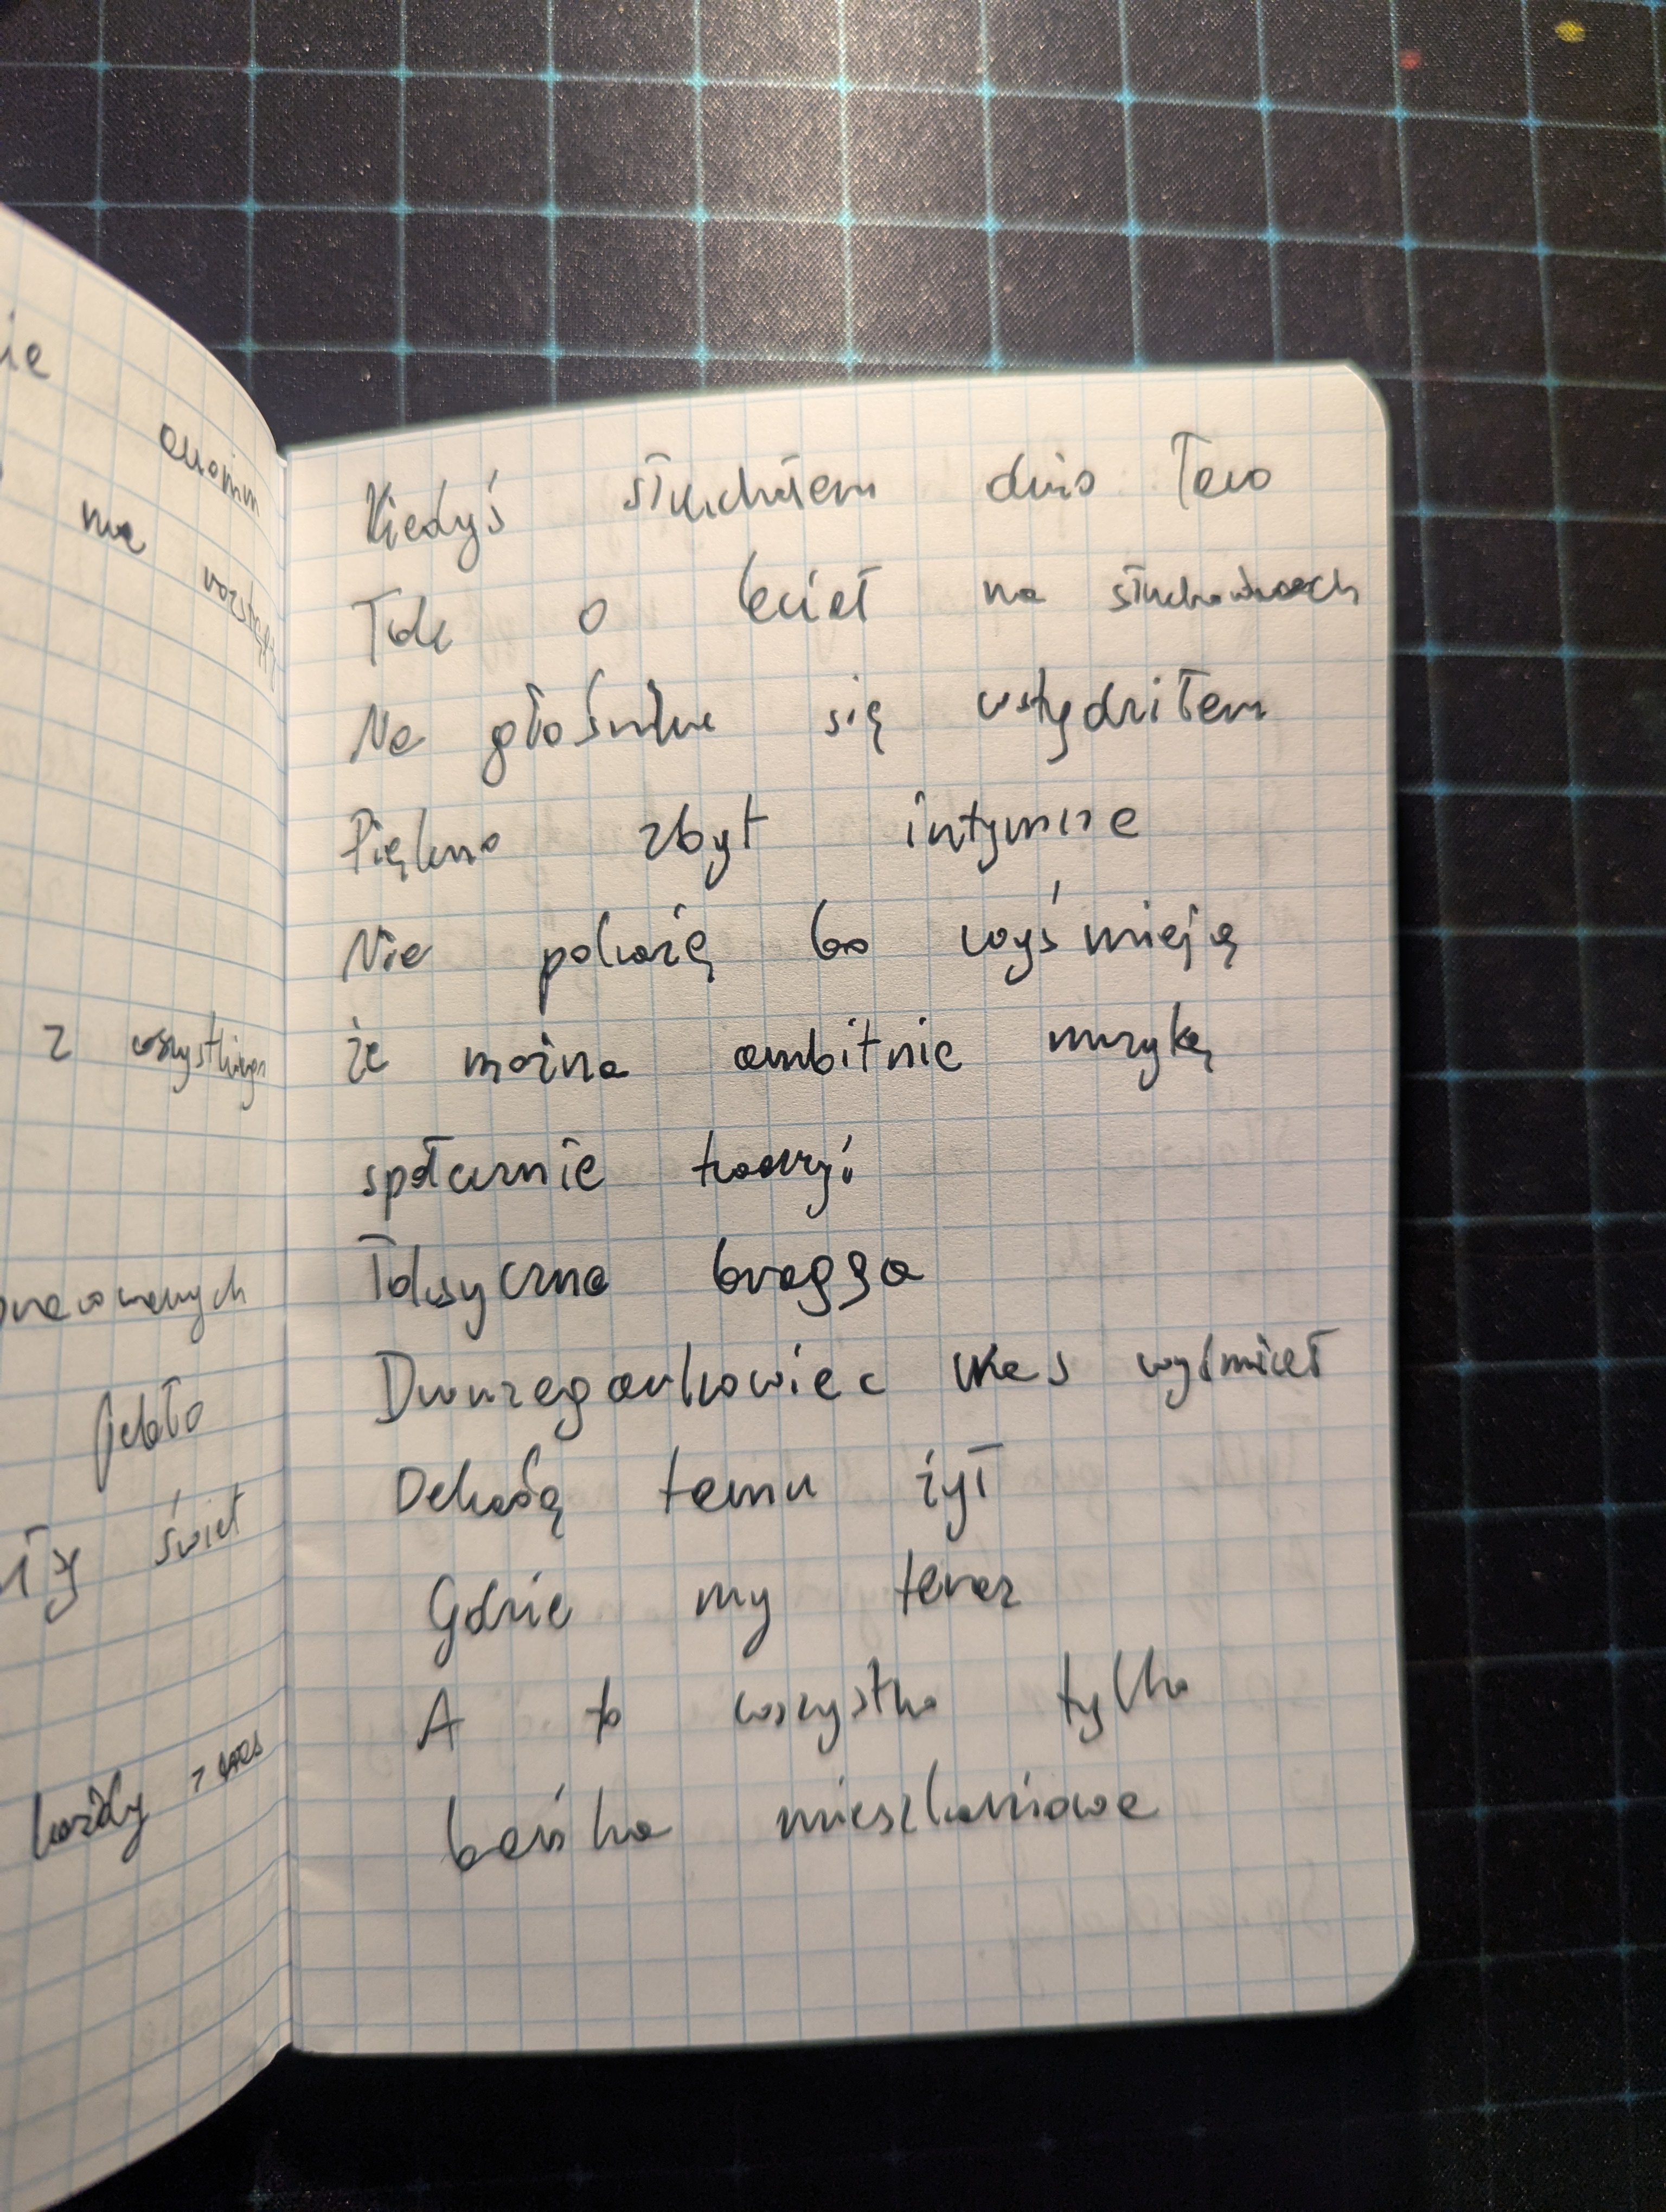 ie
anonim
na
z wszystkim
pracowanych
jebło
świat
każdy z nas
Kiedyś słuchałem dużo Tau
Tak o leciał na słuchawkach
Na głośniku się wstydziłem
Piękno zbyt intymne
Nie pokażę bo wyśmieją
że można ambitnie muzykę
społecznie tworzyć
Toksyczna bragga
Dwuzegarkowiec was wyśmiał
Dekadę temu żył
Gdzie my teraz
A to wszystko tylko
bańka mieszkaniowa